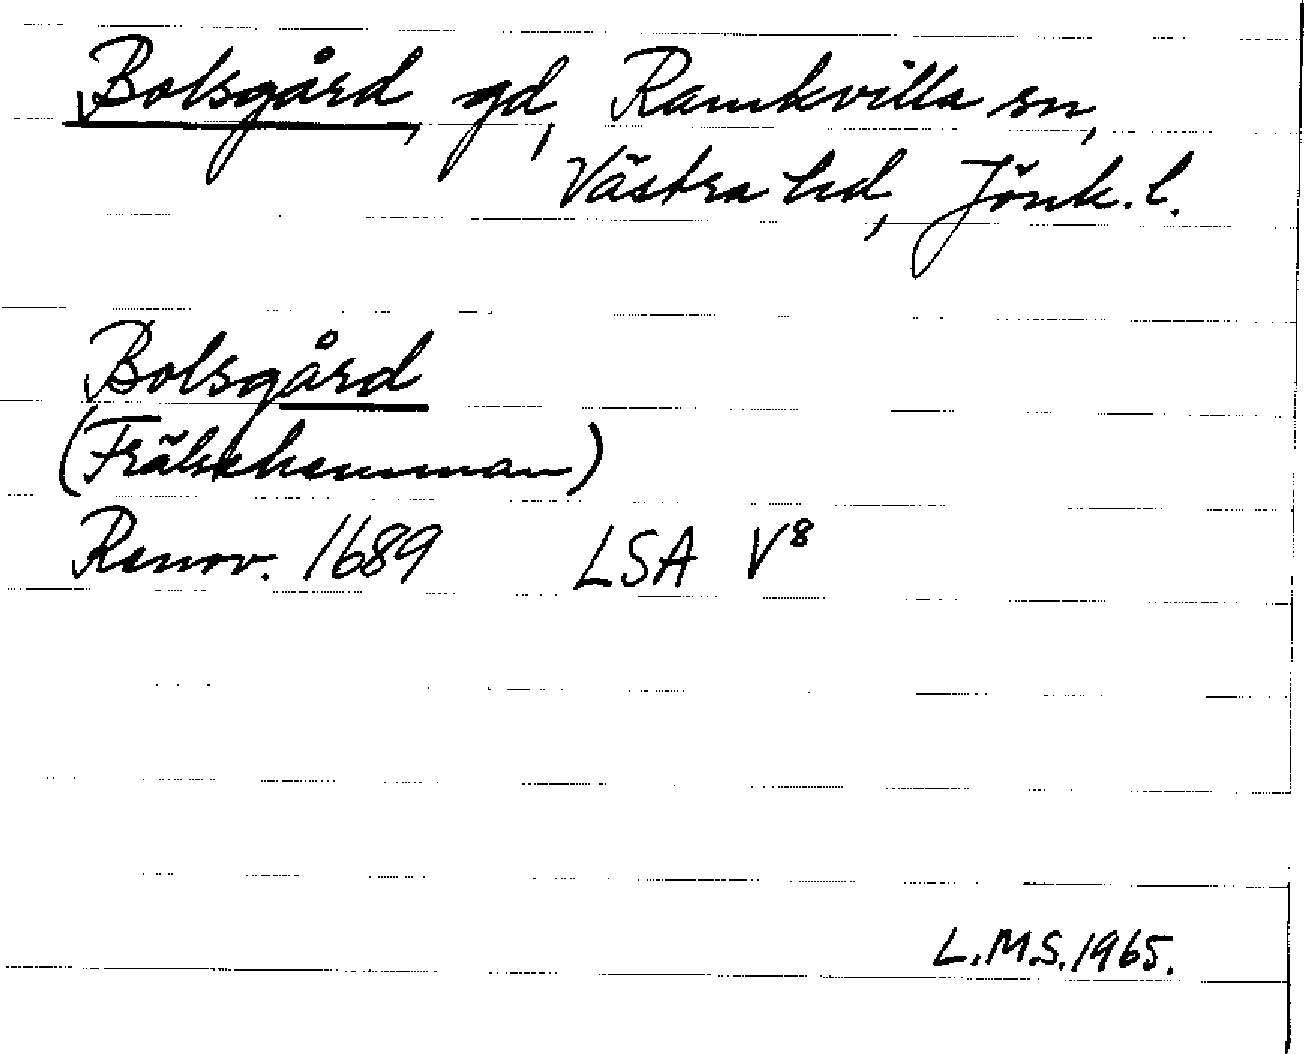 Bolsgård, gd, Ramkvilla sn,
Västra hd, Jönk. l.
Bolsgård
(Frälsehemman)
Renov. 1689 LSA V8
L.M.S. 1965.